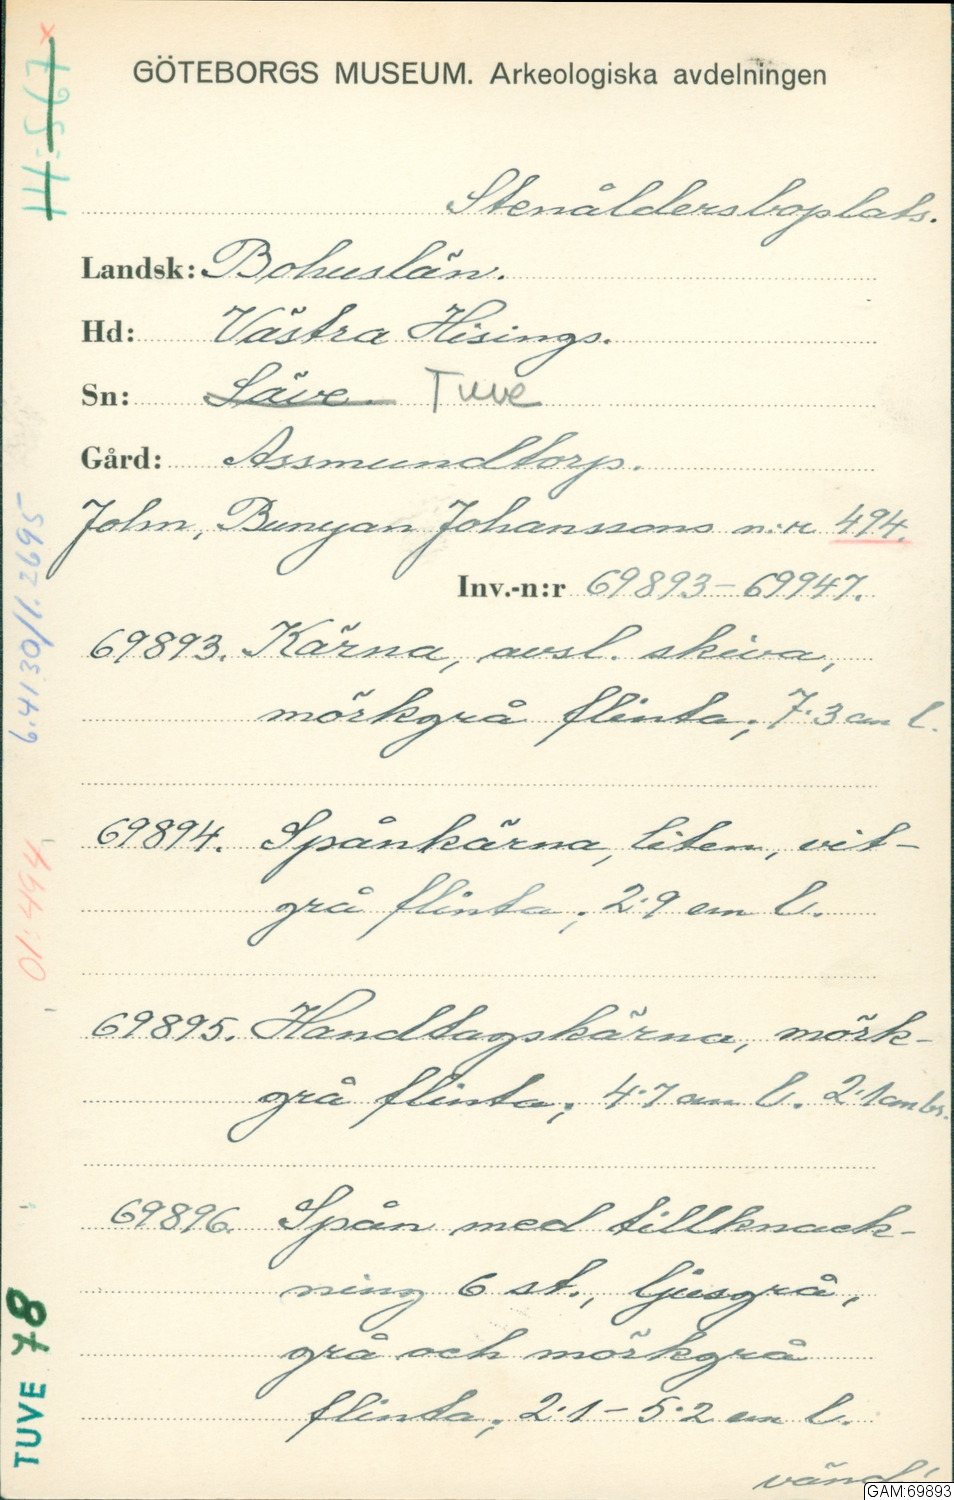 GÖTEBORGS MUSEUM. Arkeologiska avdelningen
Stenåldersboplats.
Landsk: Bohuslän.
Hd: Västra Hisings.
Sn: Säve. Tuve
Gård: Assmundtorp.
John, Bunyan Johanssons n:r 494.
Inv.-n:r 69893-69947.
69893. Kärna, avsl. skiva,
mörkgrå flinta; 7.3 cm l.
69894. Spånkärna, liten, vit-
grå flinta; 2.9 cm l.
69895. Handtagskärna, mörk-
grå flinta; 4.7 cm l. 2.1 cm br.
69896. Spån med tillknack-
ning 6 st., ljusgrå,
grå och mörkgrå
flinta; 2.1-5.2 cm l.
vänd!
H:567 x
6.4130/1.2695
01:494
TUVE 78
GAM:69893